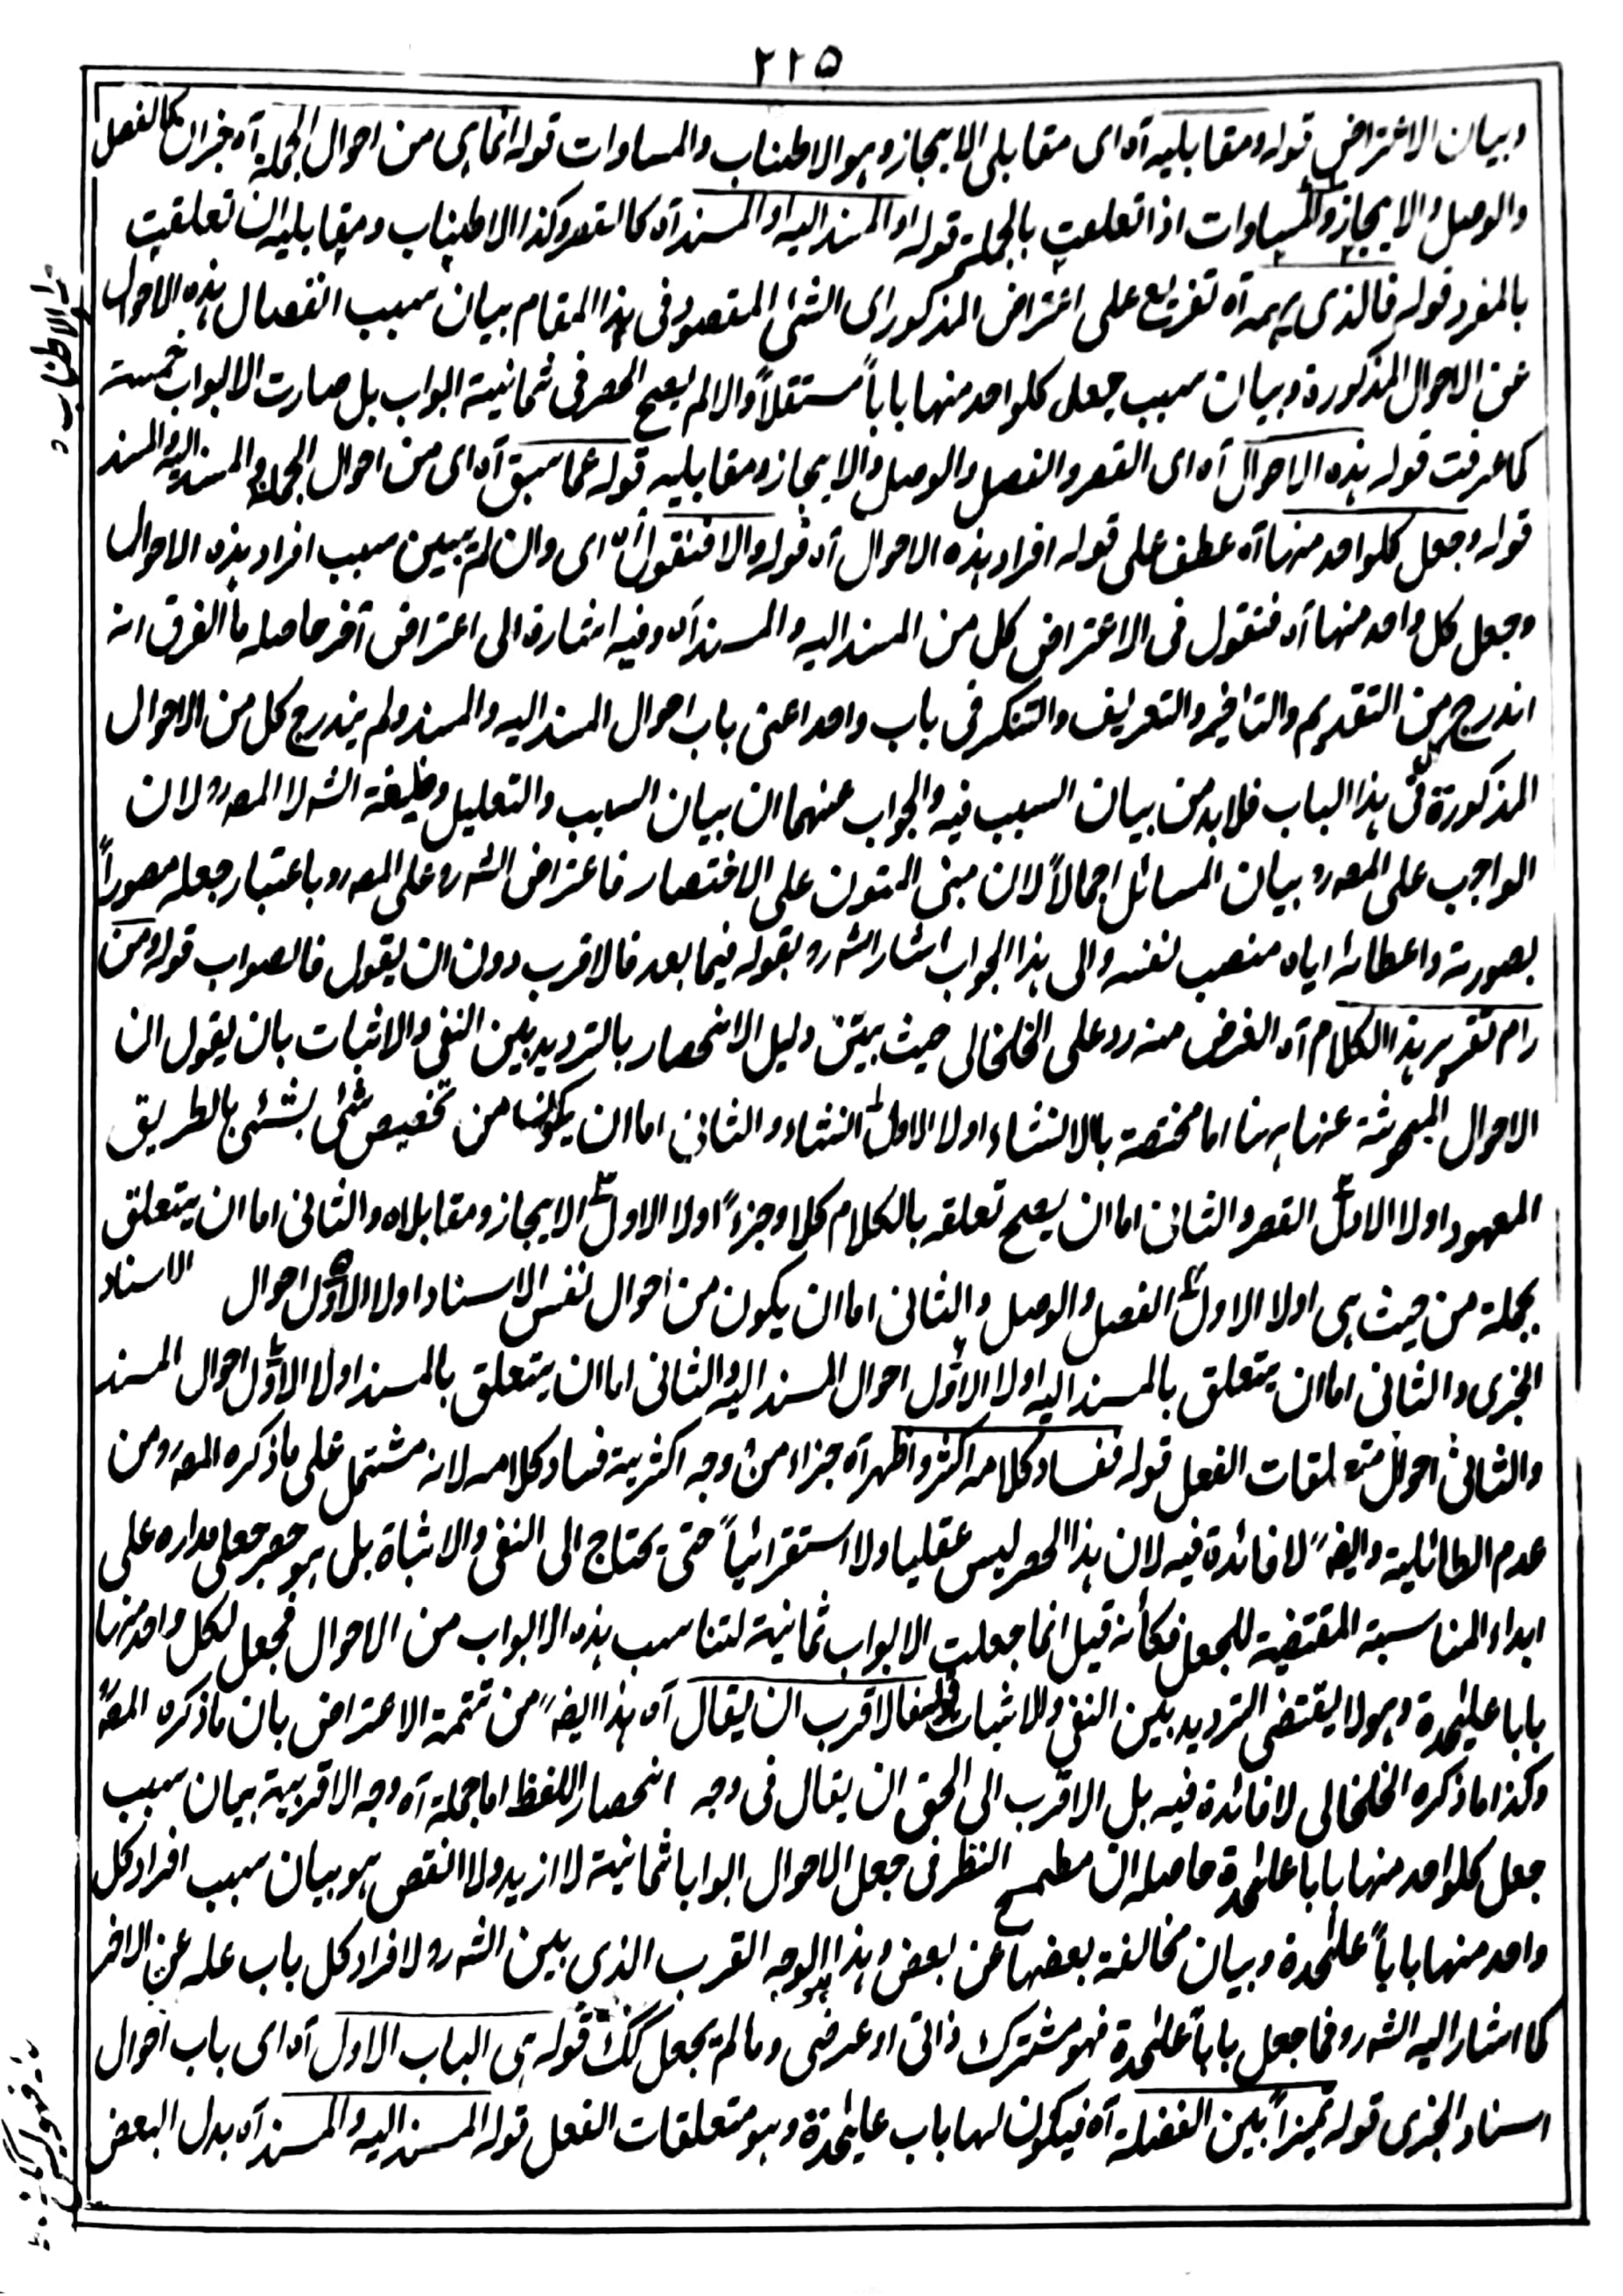 ٢٢٥
وبيان الاعتراض قوله ومقابليه آه اى مقابلى الايجاز وهو الاطناب والمساوات قوله انما هى من احوال الجملة آه خبر ان كالفصل
والوصل والايجاز والمساوات اذا تعلقت بالجملة قوله او المسند اليه او المسند آه كالقصر وكذا الاطناب ومقابليه ان تعلقت
بالمفرد قوله فالذى يهمه آه تفريع على اعتراض المذكور اى الشئ المقصود فى هذا المقام بيان سبب انفصال هذه الاحوال
عن الاحوال المذكورة وبيان سبب جعل كلواحد منها باباً مستقلاً والا لم يصح الحصر فى ثمانية ابواب بل صارت الابواب خمسة
كما عرفت قوله هذه الاحوال آه اى القصر والفصل والوصل والايجاز ومقابليه قوله عما سبق آه اى من احوال الجملة والمسند اليه والمسند
قوله وجعل كلواحد منها آه عطف على قوله افراد هذه الاحوال آه قوله والا فنقول آه اى وان لم يبين سبب افراد هذه الاحوال
وجعل كل واحد منها آه فنقول فى الاعتراض كل من المسند اليه والمسند آه وفيه اشارة الى اعتراض آخر حاصله ما الفرق انه
اندرج من التقديم والتاخير والتعريف والتنكر فى باب واحد اعنى باب احوال المسند اليه والمسند ولم يندرج كل من الاحوال
المذكورة فى هذا الباب فلابد من بيان السبب فيه والجواب عنهما ان بيان السبب والتعليل وظيفة الشه لا المصه رو لان
الواجب على المصه رو بيان المسائل اجمالاً لان مبنى المتون على الاختصار فاعتراض الشه رو على المصه رو باعتبار جعله مصوراً
بصورته واعطائه اياه منصب نفسه والى هذا الجواب اشار الشه رو بقوله فيما بعد فالاقرب دون ان يقول فالصواب قوله ومن
رام تقرير هذا الكلام آه الغرض منه رد على الخلخالى حيث بيّن دليل الانحصار بالترديد بين النفى والاثبات بان يقول ان
الاحوال المبحوثة عنها ههنا اما مختصة بالانشاء اولا الاول الانشاء والثانى اما ان يكون من تخصيص شئ بشئ بالطريق
المعهود اولا الاول القصر والثانى اما ان يصح تعلقه بالكلام كلا وجزءً اولا الاول الايجاز ومقابلاه والثانى اما ان يتعلق
بجملة من حيث هى اولا الاول الفصل والوصل والثانى اما ان يكون من احوال نفس الاسناد اولا والاول احوال الاسناد
الخبرى والثانى اما ان يتعلق بالمسند اليه اولا الاول احوال المسند اليه والثانى اما ان يتعلق بالمسند اولا الاول احوال المسند
والثانى احوال متعلقات الفعل قوله ففساد كلامه اكثر واظهر آه جزاء من وجه اكثرية فساد كلامه لانه مشتمل على ما ذكره المصه رو من
عدم الطائلية وايضاً لا فائدة فيه لان هذا الحصر ليس عقليا ولا استقرائياً حتى يحتاج الى النفى والاثباة بل هو حصر جعلى مداره على
ابداء المناسبة المقتضية للجعل فكأنه قيل انما جعلت الابواب ثمانية لتناسب هذه الابواب من الاحوال فجعل لكل واحد منها
بابا عليحدة وهو لا يقتضى الترديد بين النفى والاثبات قوله فالاقرب ان يقال آه هذا ايضاً من تتمة الاعتراض بان ما ذكره المصه
وكذا ما ذكره الخلخالى لا فائدة فيه بل الاقرب الى الحق ان يقال فى وجه انحصار اللفظ اما جملة آه وجه الاقربية بيان سبب
جعل كلواحد منها باباً عليحدة حاصله ان مطمح النظر فى جعل الاحوال ابوابا ثمانية لا ازيد ولا انقص هو بيان سبب افراد كل
واحد منها باباً عليحدة وبيان مخالفة بعضها عن بعض وهذا هو الوجه القرب الذى بين الشه رو لافراد كل باب عله عن الاخر
كما اشار اليه الشه رو فما جعل باباً عليحدة فهو مشترك ذاتى او عرضى وما لم يجعل كك قوله هى الباب الاول آه اى باب احوال
اسناد الخبرى قوله تميزاً بين الفضلة آه فيكون لها باب عليحدة وهو متعلقات الفعل قوله المسند اليه والمسند آه بدل البعض
والاطناب